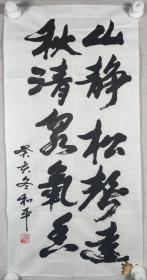 山静松聲遠
秋清泉氣香
癸亥冬和平